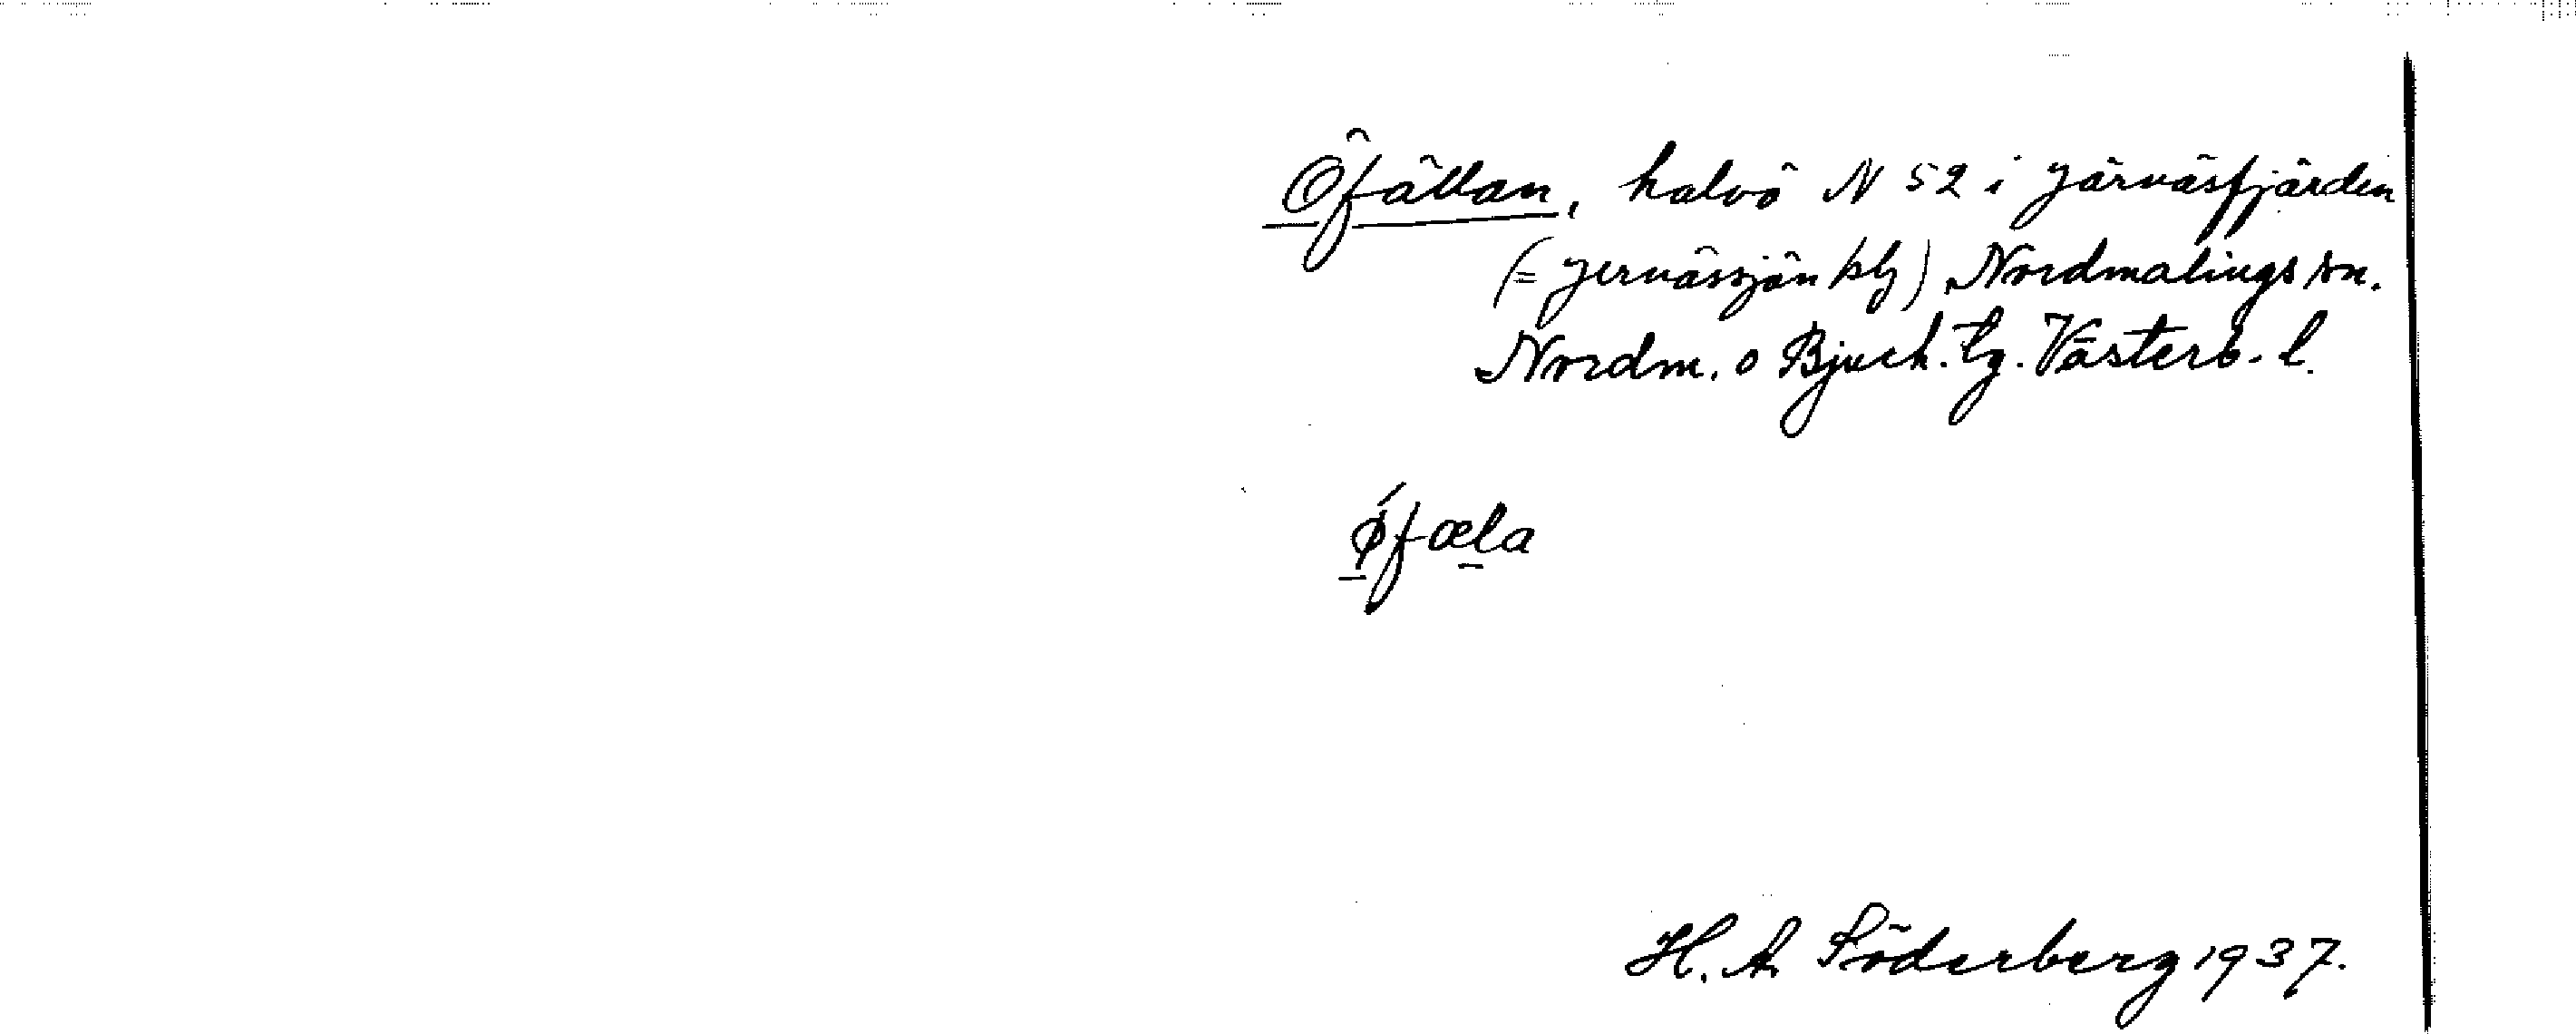 Öfällan, halvö N 52 i Järnäsfjärden
(= Jernässjön kbl) Nordmalings sn.
Nordm. o Bjurh. tg. Västerb. l.
ǿfæla
H. A. Söderberg 1937.